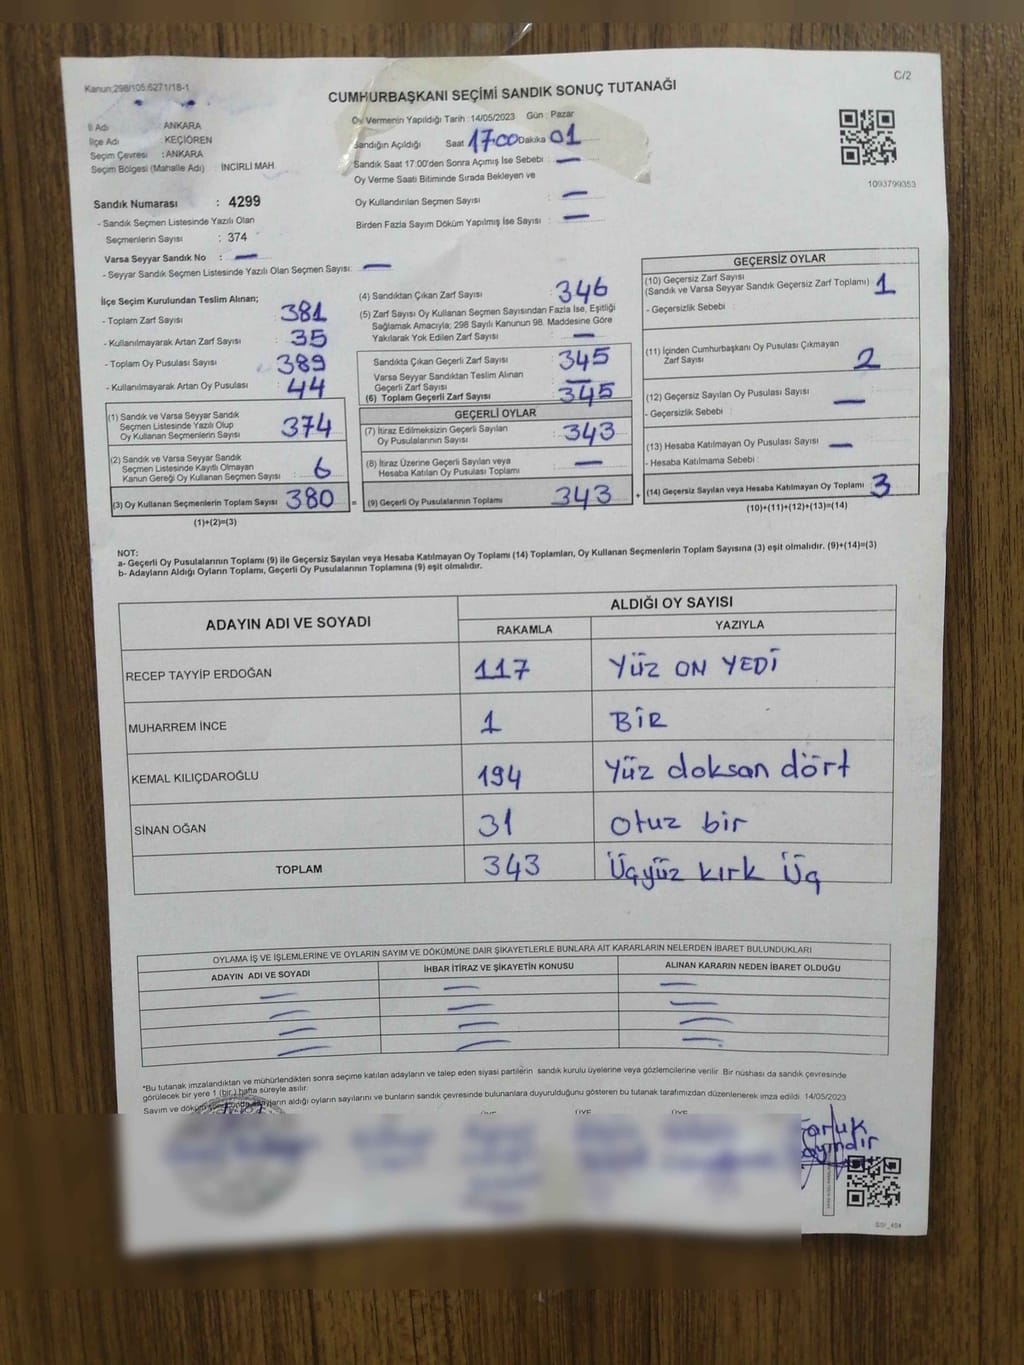 Kanun:298/105:6271/18-1
C/2
CUMHURBAŞKANI SEÇİMİ SANDIK SONUÇ TUTANAĞI
İl Adı : ANKARA
İlçe Adı : KEÇİÖREN
Seçim Çevresi : ANKARA
Seçim Bölgesi (Mahalle Adı) : İNCİRLİ MAH.
Sandık Numarası : 4299
- Sandık Seçmen Listesinde Yazılı Olan
Seçmenlerin Sayısı : 374
Varsa Seyyar Sandık No : —
- Seyyar Sandık Seçmen Listesinde Yazılı Olan Seçmen Sayısı: —
Oy Vermenin Yapıldığı Tarih : 14/05/2023 Gün : Pazar
Sandığın Açıldığı Saat 17:00 Dakika 01
Sandık Saat 17.00'den Sonra Açımış İse Sebebi : —
Oy Verme Saati Bitiminde Sırada Bekleyen ve
Oy Kullandırılan Seçmen Sayısı : —
Birden Fazla Sayım Döküm Yapılmış İse Sayısı : —
1093799353
İlçe Seçim Kurulundan Teslim Alınan;
- Toplam Zarf Sayısı : 381
- Kullanılmayarak Artan Zarf Sayısı : 35
- Toplam Oy Pusulası Sayısı : 389
- Kullanılmayarak Artan Oy Pusulası : 44
(1) Sandık ve Varsa Seyyar Sandık
Seçmen Listesinde Yazılı Olup
Oy Kullanan Seçmenlerin Sayısı : 374
(2) Sandık ve Varsa Seyyar Sandık
Seçmen Listesinde Kayıtlı Olmayan
Kanun Gereği Oy Kullanan Seçmen Sayısı : 6
(3) Oy Kullanan Seçmenlerin Toplam Sayısı : 380
(1)+(2)=(3)
(4) Sandıktan Çıkan Zarf Sayısı : 346
(5) Zarf Sayısı Oy Kullanan Seçmen Sayısından Fazla İse, Eşitliği
Sağlamak Amacıyla; 298 Sayılı Kanunun 98. Maddesine Göre
Yakılarak Yok Edilen Zarf Sayısı : —
Sandıkta Çıkan Geçerli Zarf Sayısı : 345
Varsa Seyyar Sandıktan Teslim Alınan
Geçerli Zarf Sayısı : —
(6) Toplam Geçerli Zarf Sayısı : 345
GEÇERLİ OYLAR
(7) İtiraz Edilmeksizin Geçerli Sayılan
Oy Pusulalarının Sayısı : 343
(8) İtiraz Üzerine Geçerli Sayılan veya
Hesaba Katılan Oy Pusulası Toplamı : —
= (9) Geçerli Oy Pusulalarının Toplamı : 343 +
GEÇERSİZ OYLAR
(10) Geçersiz Zarf Sayısı
(Sandık ve Varsa Seyyar Sandık Geçersiz Zarf Toplamı) : 1
- Geçersizlik Sebebi :
(11) İçinden Cumhurbaşkanı Oy Pusulası Çıkmayan
Zarf Sayısı : 2
(12) Geçersiz Sayılan Oy Pusulası Sayısı : —
- Geçersizlik Sebebi :
(13) Hesaba Katılmayan Oy Pusulası Sayısı : —
- Hesaba Katılmama Sebebi :
(14) Geçersiz Sayılan veya Hesaba Katılmayan Oy Toplamı : 3
(10)+(11)+(12)+(13)=(14)
NOT:
a- Geçerli Oy Pusulalarının Toplamı (9) ile Geçersiz Sayılan veya Hesaba Katılmayan Oy Toplamı (14) Toplamları, Oy Kullanan Seçmenlerin Toplam Sayısına (3) eşit olmalıdır. (9)+(14)=(3)
b- Adayların Aldığı Oyların Toplamı, Geçerli Oy Pusulalarının Toplamına (9) eşit olmalıdır.
ADAYIN ADI VE SOYADI
ALDIĞI OY SAYISI
RAKAMLA YAZIYLA
RECEP TAYYİP ERDOĞAN 117 YÜZ ON YEDİ
MUHARREM İNCE 1 BİR
KEMAL KILIÇDAROĞLU 194 Yüz doksan dört
SİNAN OĞAN 31 Otuz bir
TOPLAM 343 Üçyüz kırk Üç
OYLAMA İŞ VE İŞLEMLERİNE VE OYLARIN SAYIM VE DÖKÜMÜNE DAİR ŞİKAYETLERLE BUNLARA AİT KARARLARIN NELERDEN İBARET BULUNDUKLARI
ADAYIN ADI VE SOYADI İHBAR İTİRAZ VE ŞİKAYETİN KONUSU ALINAN KARARIN NEDEN İBARET OLDUĞU
— — —
— — —
— — —
— — —
*Bu tutanak imzalandıktan ve mühürlendikten sonra seçime katılan adayların ve talep eden siyasi partilerin sandık kurulu üyelerine veya gözlemcilerine verilir. Bir nüshası da sandık çevresinde
görülecek bir yere 1 (bir ) hafta süreyle asılır.
Sayım ve döküm adayların aldığı oyların sayılarını ve bunların sandık çevresinde bulunanlara duyurulduğunu gösteren bu tutanak tarafımızdan düzenlenerek imza edildi. 14/05/2023
ÜYE ÜYE ÜYE
Faruk